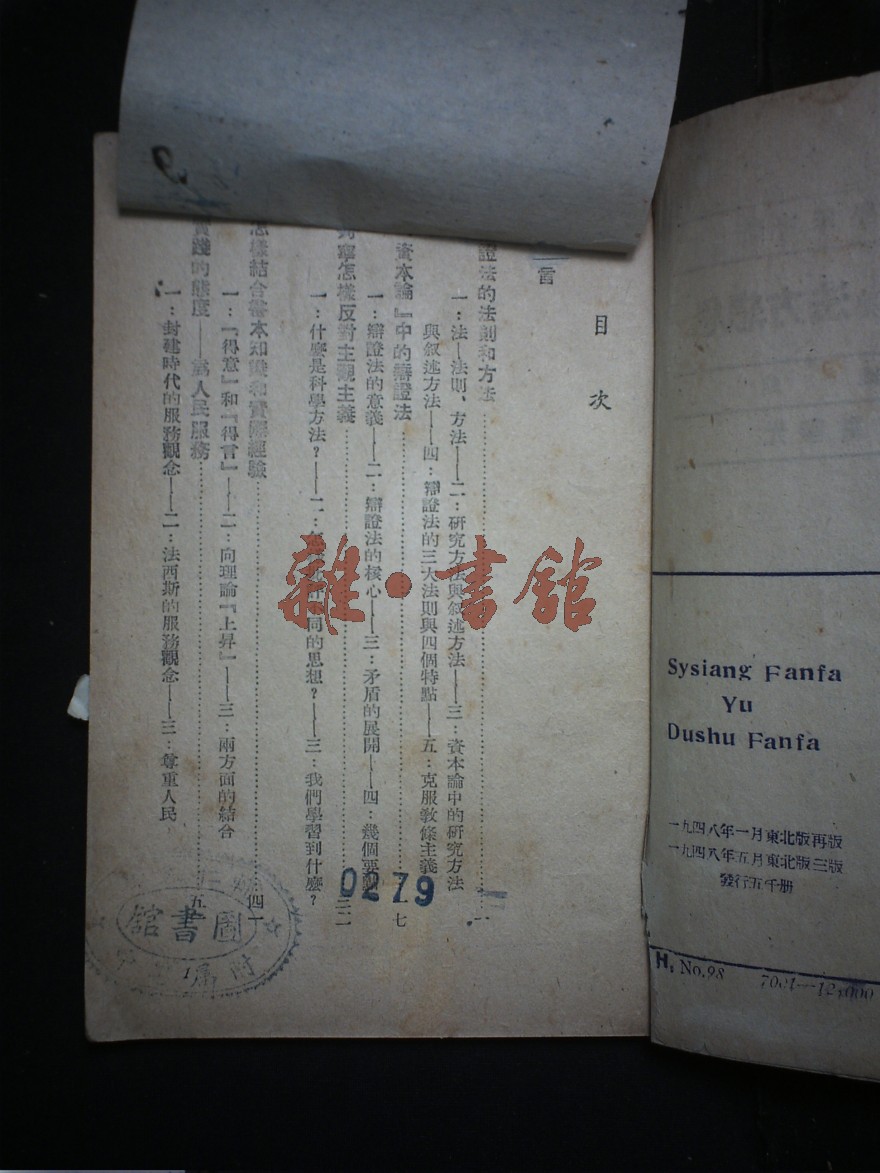 目次
言
證法的法則和方法
一：法—法則、方法——二：研究方法與叙述方法——三：資本論中的研究方法
與叙述方法——四：辯證法的三大法則與四個特點——五：克服教條主義
資本論』中的辯證法
七
一：辯證法的意義——二：辯證法的核心——三：矛盾的展開——四：幾個要
列寧怎樣反對主觀主義
三二
一：什麼是科學方法？——二：同的思想？——三：我們學習到什麼？
怎樣結合書本知識和實際經驗
四一
一：『得意』和『得言』——二：向理論『上昇』——三：兩方面的結合
實踐的態度——爲人民服務
五
一：封建時代的服務觀念——二：法西斯的服務觀念——三：尊重人民
1
0279
圖書館
附屬
雜·書館
Sysiang Fanfa
Yu
Dushu Fanfa
一九四八年一月東北版再版
一九四八年五月東北版三版
發行五千册
H, No.98
7001—12,000